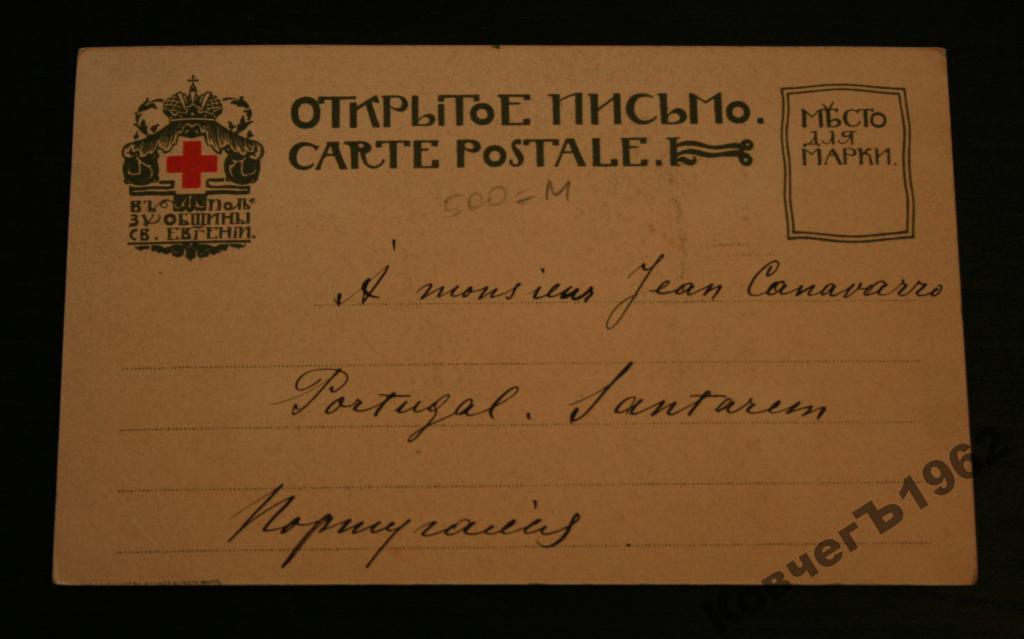 ОТКРЫТОЕ ПИСЬМО.
CARTE POSTALE.
МѢСТО
ДЛЯ
МАРКИ.
ВЪ ПОЛЬ-
ЗУ ОБЩИНЫ
СВ. ЕВГЕНІИ.
500=М
À monsieur Jean Canavarro
Portugal. Santarem
Португалія
КовчегЪ1962